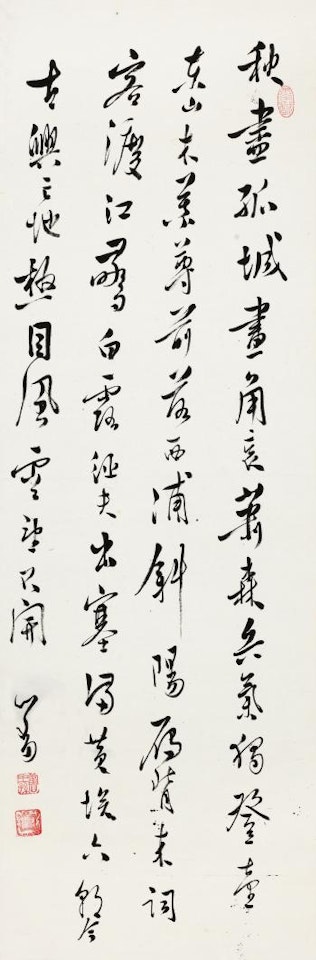 秋盡孤城畫角哀蕭森兵氣獨登臺
東山木葉尊前落西浦斜陽雁背來詞
客渡江驚白露征夫出塞黃埃六朝今
古興亡地極目風雲望開 心畬